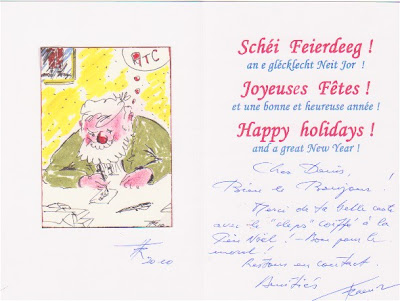 ATC
20.10
Schéi Feierdeeg !
an e glécklecht Neit Jor !
Joyeuses Fêtes !
et une bonne et heureuse année !
Happy holidays !
and a great New Year !
Cher Denis,
Bien le Bonjour !
Merci de ta belle carte
avec le "cleps" coiffé à la
Père Noël ! - Bon pour le
moral !
Restons en contact.
Amitiés